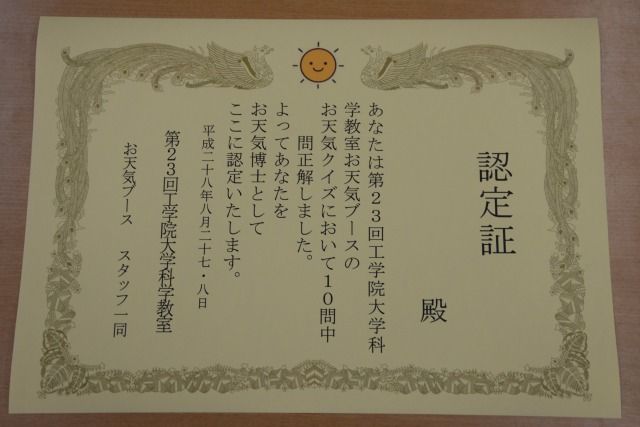 認定証
殿
あなたは第２３回工学院大学科
学教室お天気ブースの
お天気クイズにおいて１０問中
問正解しました。
よってあなたを
お天気博士として
ここに認定いたします。
平成二十八年八月二十七・八日
第２３回工学院大学科学教室
お天気ブース　スタッフ一同